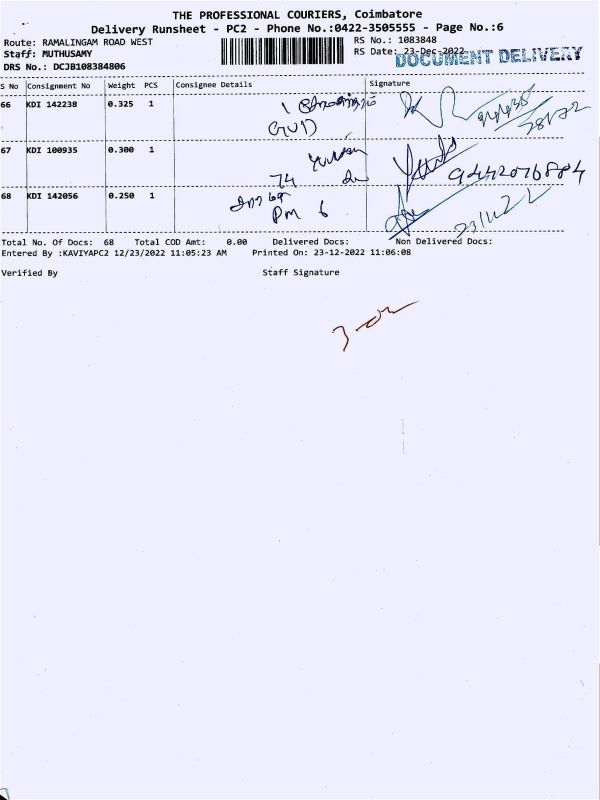 THE PROFESSIONAL COURIERS, Coimbatore
Delivery Runsheet - PC2 - Phone No.:0422-3505555 - Page No.:6
Route: RAMALINGAM ROAD WEST
RS No.: 1083848
Staff: MUTHUSAMY
RS Date: 23-Dec-2022
DOCUMENT DELIVERY
DRS No.: DCJB108384806
S No Consignment No Weight PCS Consignee Details Signature
66 KDI 142238 0.325 1
67 KDI 100935 0.300 1
74
9442076884
68 KDI 142056 0.250 1
Pm 6
Total No. Of Docs: 68 Total COD Amt: 0.00 Delivered Docs: Non Delivered Docs:
Entered By :KAVIYAPC2 12/23/2022 11:05:23 AM Printed On: 23-12-2022 11:06:08
Verified By Staff Signature